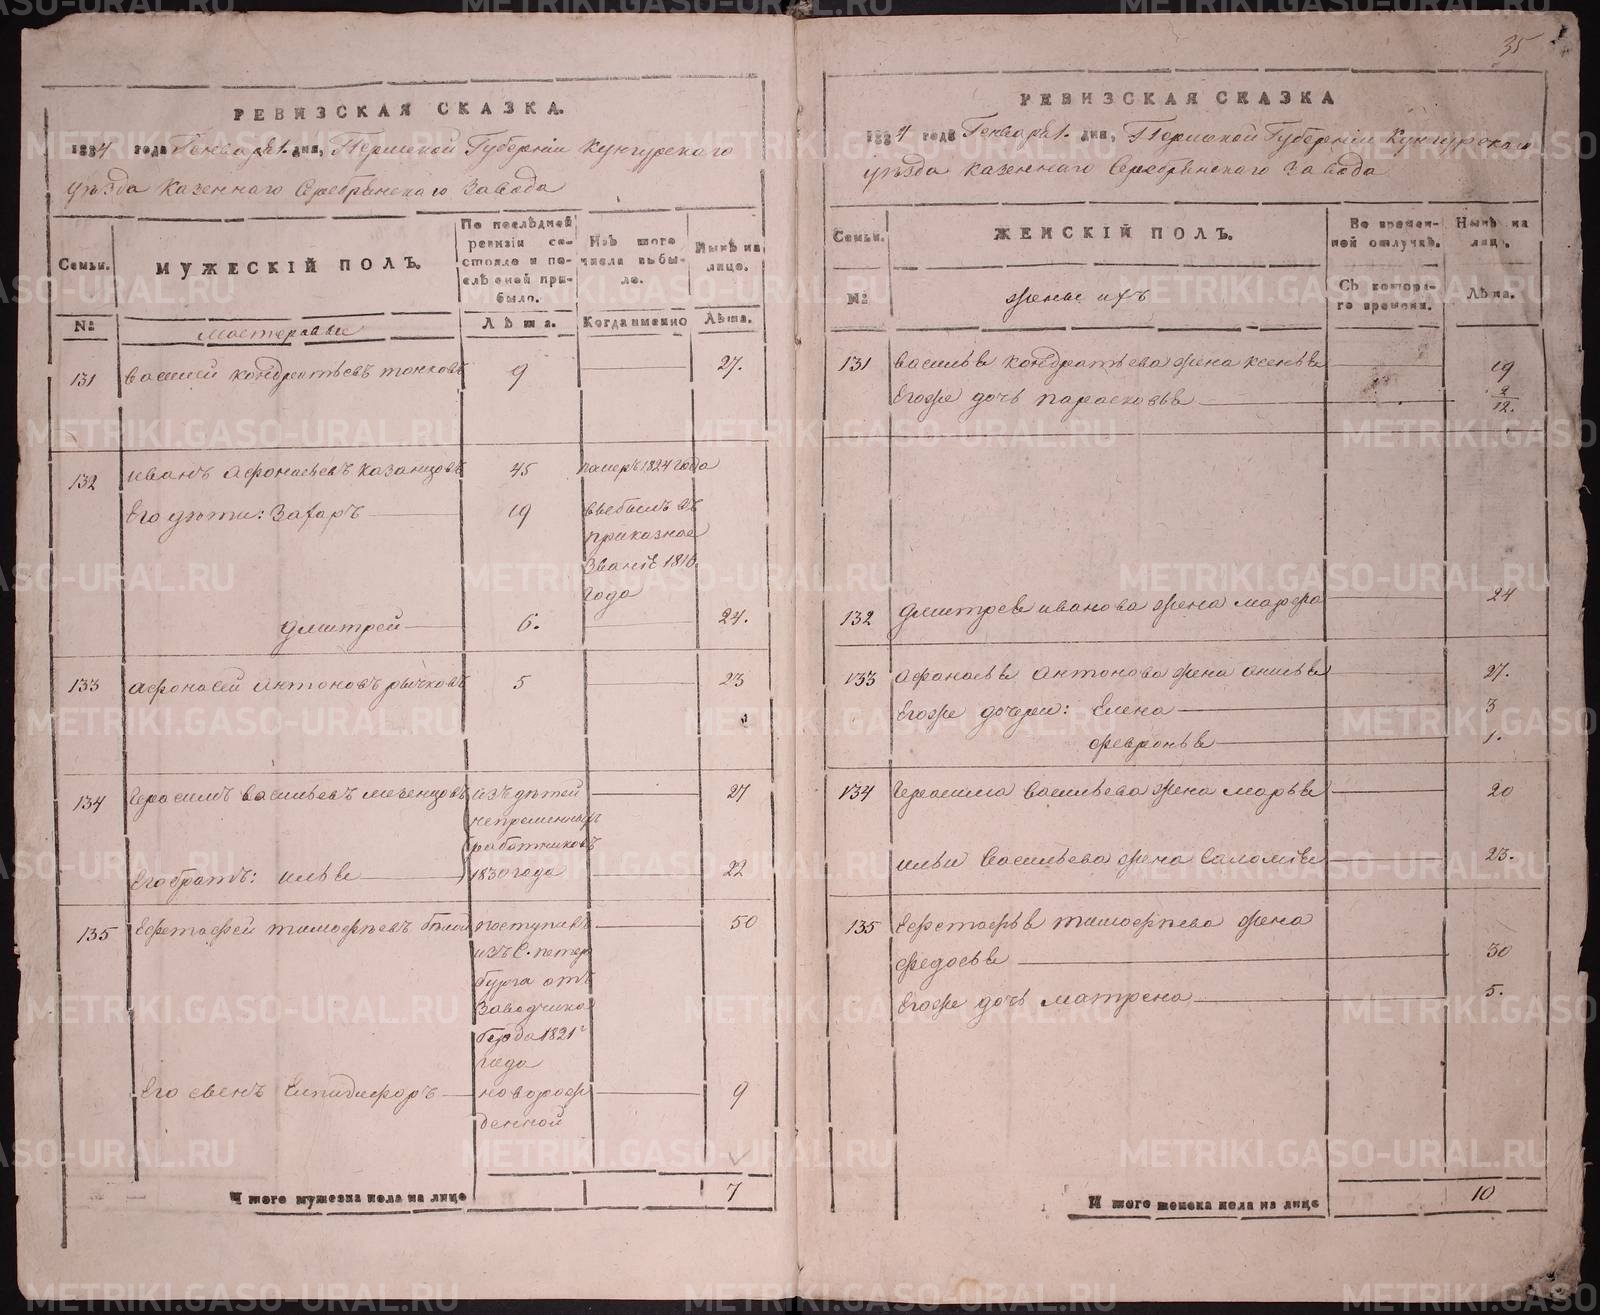 35
РЕВИЗСКАЯ СКАЗКА.
1834 года Генваря 1. дня, Пермской Губернiи Кунгурского
уѣзда казеннаго Серебрянскаго завода
Семьи.
МУЖЕСКIЙ ПОЛЪ.
По послѣдней
ревизiи со-
стояло и по-
слѣ оной при-
было.
Изъ того
числа выбы-
ло.
Нынѣ на
лице.
№
Мастеровые
Лѣта.
Когда именно
Лѣта.
131 Василей Кондратьевъ Тонковъ 9 27.
132 Иванъ Афонасьевъ Казанцовъ 45 померъ 1824 года
Его дѣти: Захаръ 19 выбылъ въ
приказное
званiе 1816
года
Дмитрей 6. 24.
133 Афонасей Антоновъ Рычковъ 5 23
134 Герасимъ Васильевъ изъ дѣтей 27
непременныхъ
работниковъ
Его братъ: Илья 1830 года 22
135 Ефстафей Тимофѣевъ поступилъ 50
изъ С. петер
бурга отъ
заводчика
Берда 1821
года
Его сынъ Елпидифоръ новорож 9
денной
Итого мужеска пола на лице 7
РЕВИЗСКАЯ СКАЗКА
1834 года Генваря 1. дня, Пермской Губернiи Кунгурскаго
уѣзда казеннаго Серебрянскаго завода
Семьи.
ЖЕНСКIЙ ПОЛЪ.
Во времен-
ной отлучкѣ.
Нынѣ на
лице.
№
жены ихъ
Съ котора-
го времени.
Лѣта.
131 Василья Кондратьева жена Ксенья 19
Егоже дочь Парасковья 2/12.
132 Дмитрея Иванова жена Марфа 24
133 Афонасья Антонова жена Анисья 27.
Егоже дочери: Елена 3
Февронья 1.
134 Герасима Васильева жена Марья 20
Ильи Васильева жена Саломiя 23.
135 Ефстафья Тимофѣева жена
Федосья 30
Егоже дочь Матрена 5.
Итого женска пола на лице 10
METRIKI.GASO-URAL.RU